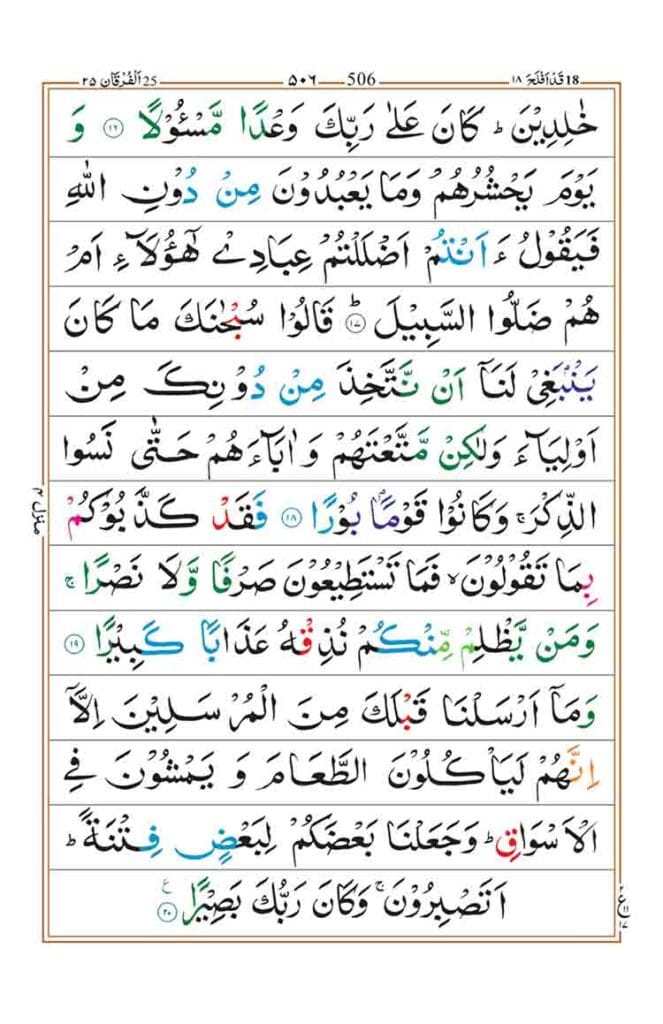 18 قَدْ اَفْلَحَ ١٨ 506 ٥٠٦ 25 اَلْفُرْقَان ٢٥
خٰلِدِيْنَ ؕ كَانَ عَلٰى رَبِّكَ وَعْدًا مَّسْـُٔوْلًا ﴿۱۶﴾ وَ
يَوْمَ يَحْشُرُهُمْ وَمَا يَعْبُدُوْنَ مِنْ دُوْنِ اللّٰهِ
فَيَقُوْلُ ءَ اَنْتُمْ اَضْلَلْتُمْ عِبَادِيْ هٰٓؤُلَآءِ اَمْ
هُمْ ضَلُّوا السَّبِيْلَ ؕ ﴿۱۷﴾ قَالُوْا سُبْحٰنَكَ مَا كَانَ
يَنْۢبَغِيْ لَنَاۤ اَنْ نَّتَّخِذَ مِنْ دُوْنِكَ مِنْ
اَوْلِيَآءَ وَلٰكِنْ مَّتَّعْتَهُمْ وَاٰبَآءَهُمْ حَتّٰى نَسُوا
الذِّكْرَ ۚ وَكَانُوْا قَوْمًۢا بُوْرًا ﴿۱۸﴾ فَقَدْ كَذَّبُوْكُمْ
بِمَا تَقُوْلُوْنَ ۙ فَمَا تَسْتَطِيْعُوْنَ صَرْفًا وَّلَا نَصْرًا ۚ
وَمَنْ يَّظْلِمْ مِّنْكُمْ نُذِقْهُ عَذَابًا كَبِيْرًا ﴿۱۹﴾
وَمَاۤ اَرْسَلْنَا قَبْلَكَ مِنَ الْمُرْسَلِيْنَ اِلَّاۤ
اِنَّهُمْ لَيَاْكُلُوْنَ الطَّعَامَ وَيَمْشُوْنَ فِي
الْاَسْوَاقِ ؕ وَجَعَلْنَا بَعْضَكُمْ لِبَعْضٍ فِتْنَةً ؕ
اَتَصْبِرُوْنَ ۚ وَكَانَ رَبُّكَ بَصِيْرًا ﴿۲۰﴾ ع
منزل ۴